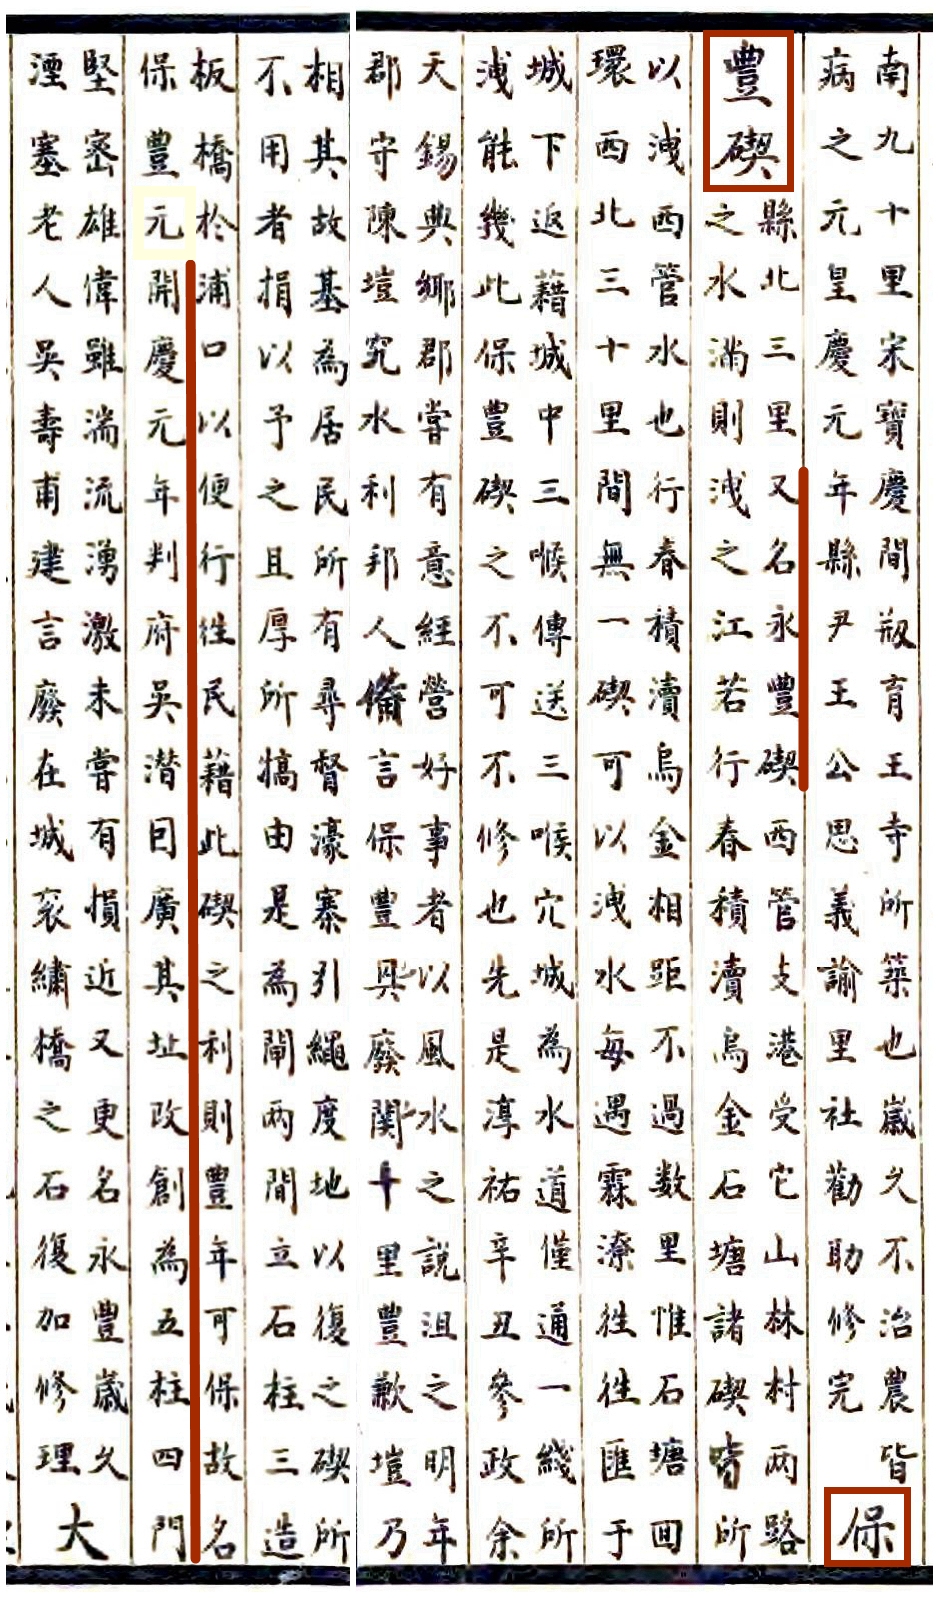 南九十里宋寶慶間育王寺所築也歲久不治農皆
病之元皇慶元年縣尹王公思義諭里社勸助修完
保
豐碶
縣北三里又名永豐碶西管支港受它山林村兩路
之水滿則洩之江若行春積瀆烏金石塘諸碶皆所
以洩西管水也行春積瀆烏金相距不過数里惟石塘囬
環西北三十里間無一碶可以洩水每遇霖潦徃徃匯于
城下返藉城中三喉傳送三喉穴城為水道僅通一綫所
洩能幾此保豐碶之不可不修也先是淳祐辛丑參政余
天錫典鄉郡嘗有意經營好事者以風水之說沮之明年
郡守陳塏究水利邦人備言保豐興廢関十里豐歉塏乃
相其故基為居民所有尋督濠寨引繩度地以復之碶所
不用者捐以予之且厚所犒由是為閘兩間立石柱三造
板橋於浦口以便行徃民藉此碶之利則豐年可保故名
保豐元開慶元年判府吳潛因廣其址改創為五柱四門
堅密雄偉雖湍流湧激未嘗有損近又更名永豐歲久
湮塞老人吳壽甫建言廢在城衮繡橋之石復加修理
大